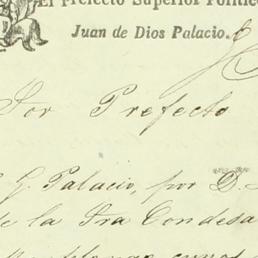 El Prefecto Superior Político
Juan de Dios Palacio.
Por Prefecto
G. Palacio, por D.
de la Sra Condesa